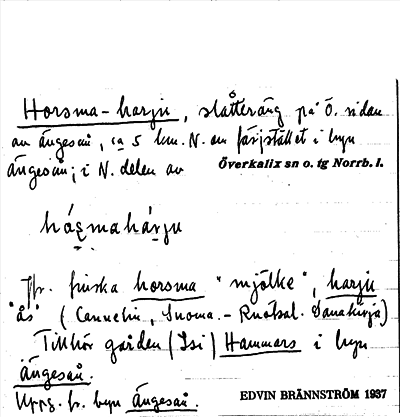 Horsma-harju, slåtteräng på Ö. sidan
av ängesån, ca 5 km. N. om färjstället i byn
Ängesån; i N. delen av Överkalix sn o. tg Norrb. l.
Jfr. finska horsma "mjölke", harju
"ås" (Cannelin, Suoma.-Ruotsal. Sanakirja)
Tillhör gården (Isi) Hammars i byn
Ängesån.
Uppg. fr. byn Ängesån.
EDVIN BRÄNNSTRÖM 1937